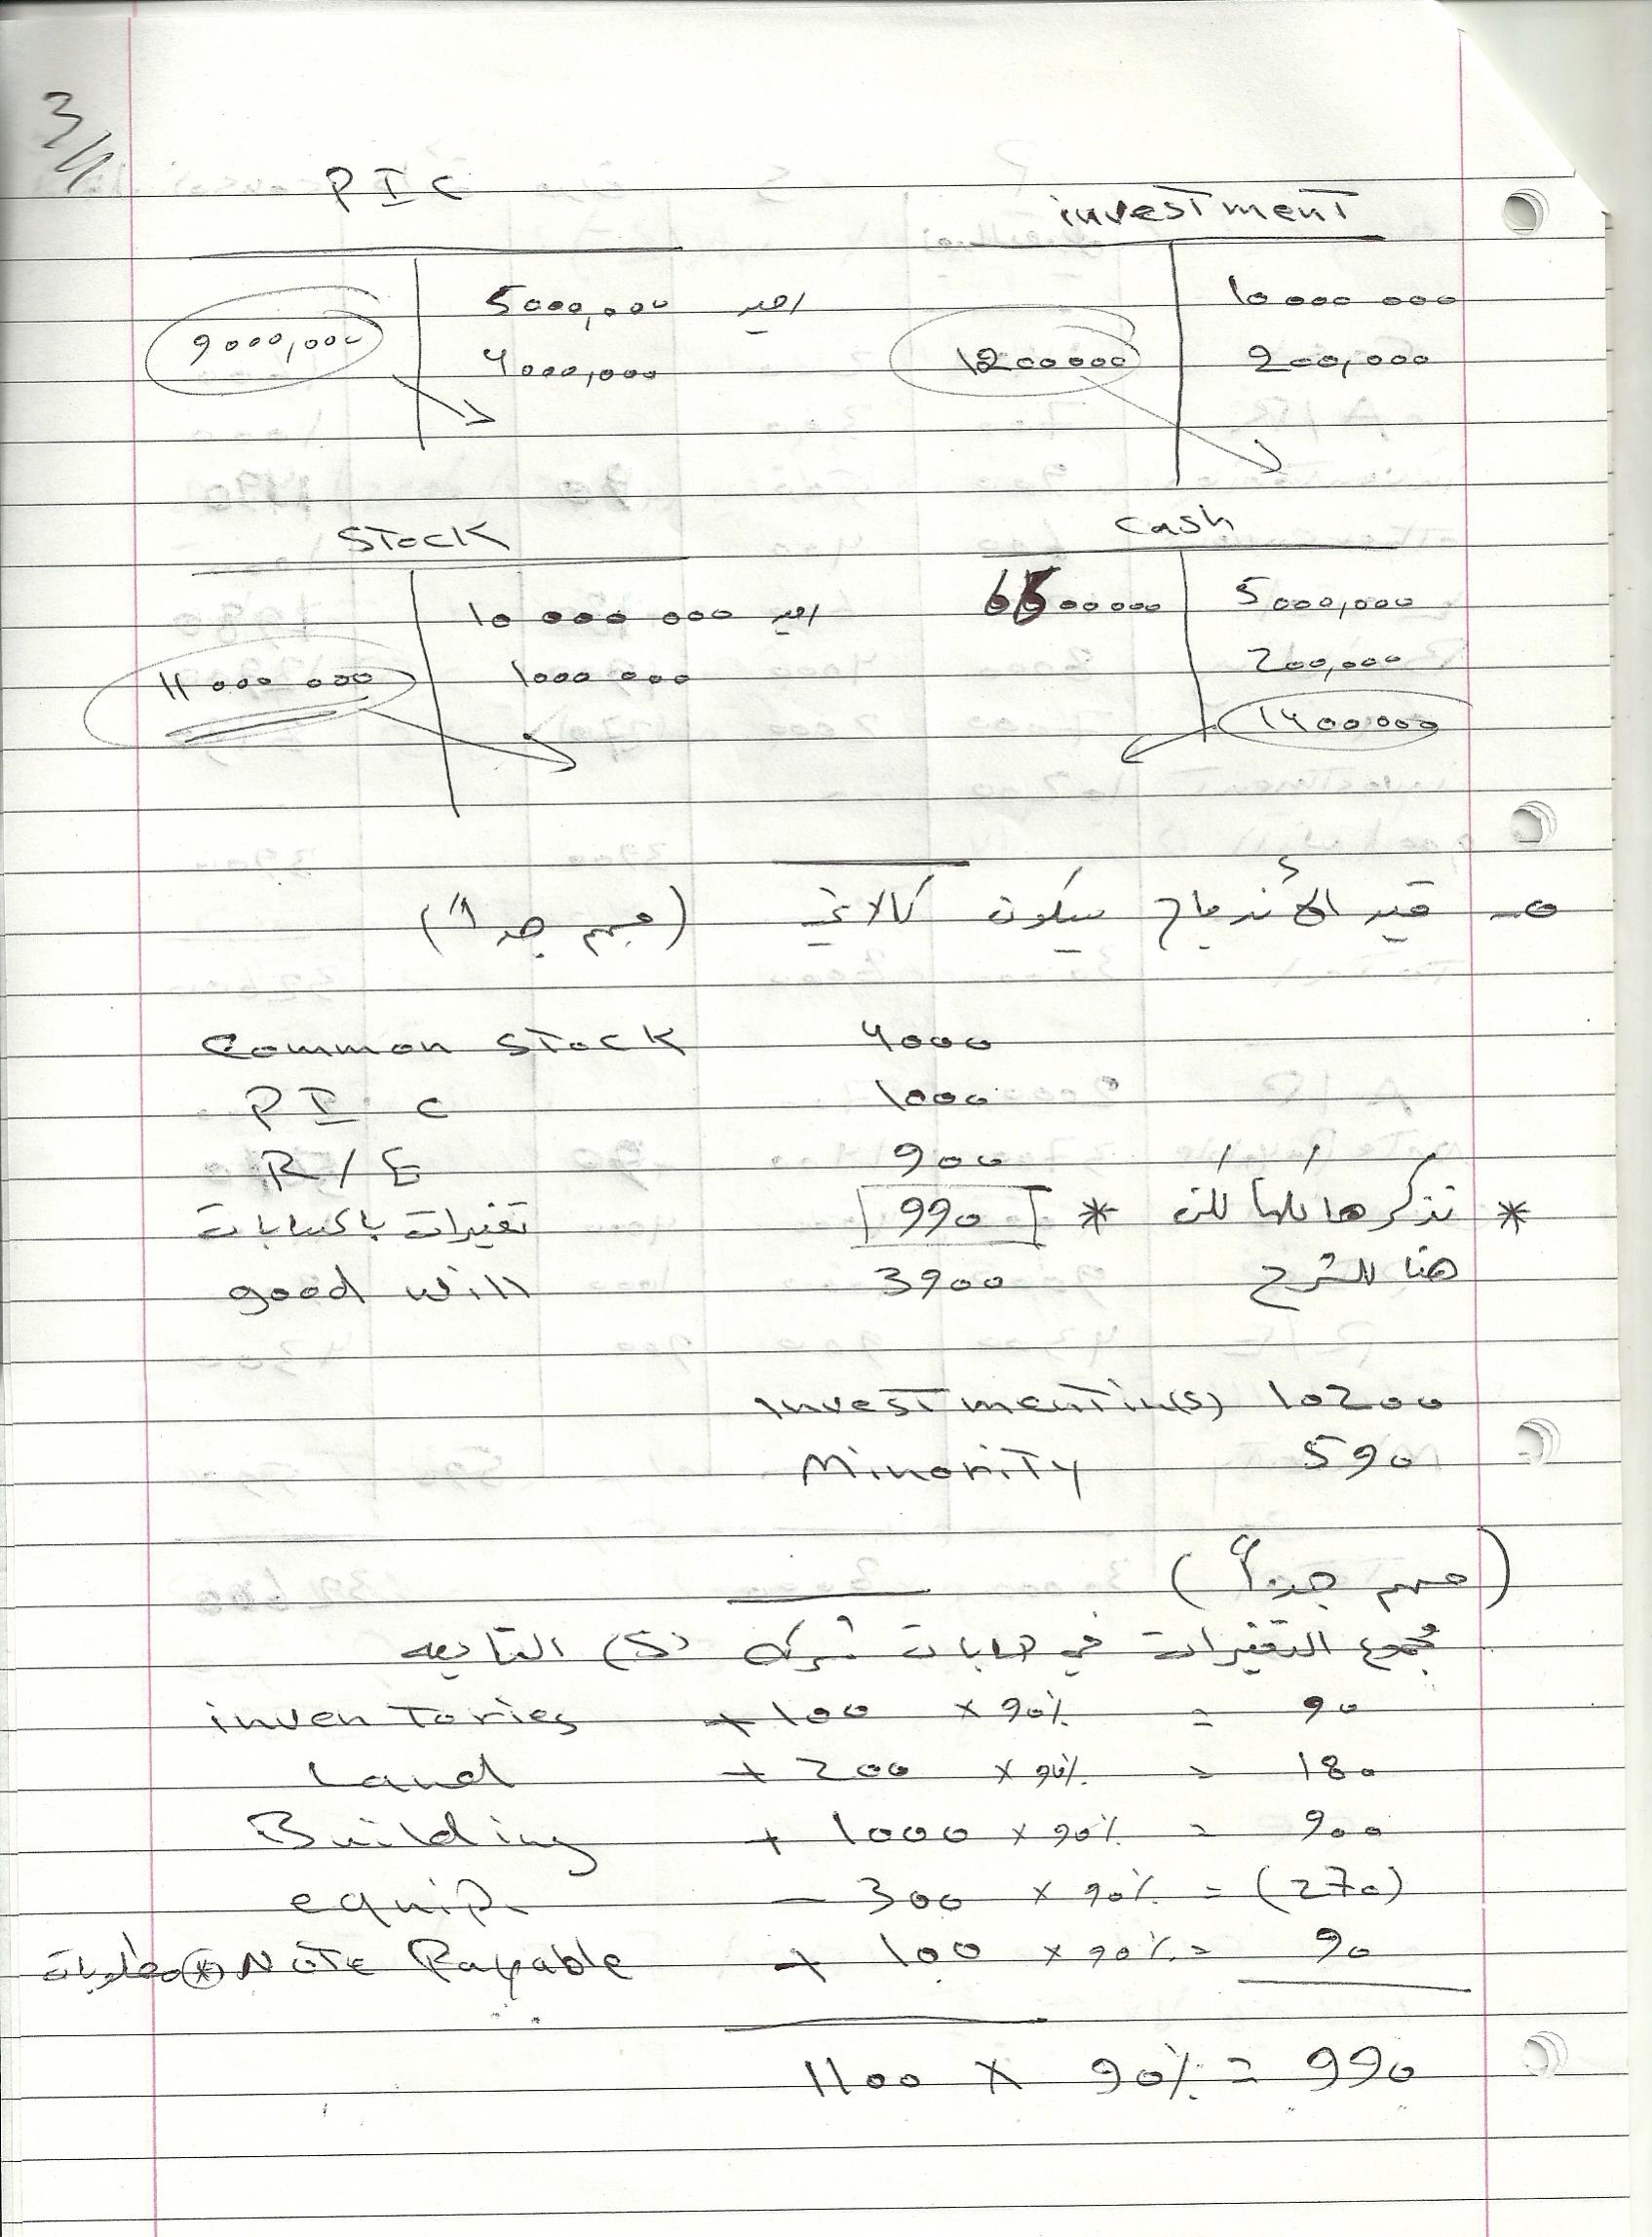 3/
PIC investment
5000,000 اصدار 10 000 000
9000,000 4000,000 1200000 200,000
Stock Cash
10 000 000 اصدار 6600000 5000,000
11 000 000 1000 000 200,000
1400,000
- قيد الأندماج سيكون كالاتي (مهم جداً)
Common Stock 4000
PIC 1000
R/E 900
تغيرات بالحسابات 990 * نذكرها كلها لكن *
good will 3900 هنا للشرح
investment in (S) 10200
Minority 590
(مهم جداً)
مجموع التغيرات في حسابات شركة (S) التابعه
inventories +100 x 90% = 90
Land + 200 x 90% = 180
Building + 1000 x 90% = 900
equip. - 300 x 90% = (270)
مطلوبات * Note Payable + 100 x 90% = 90
1100 x 90% = 990